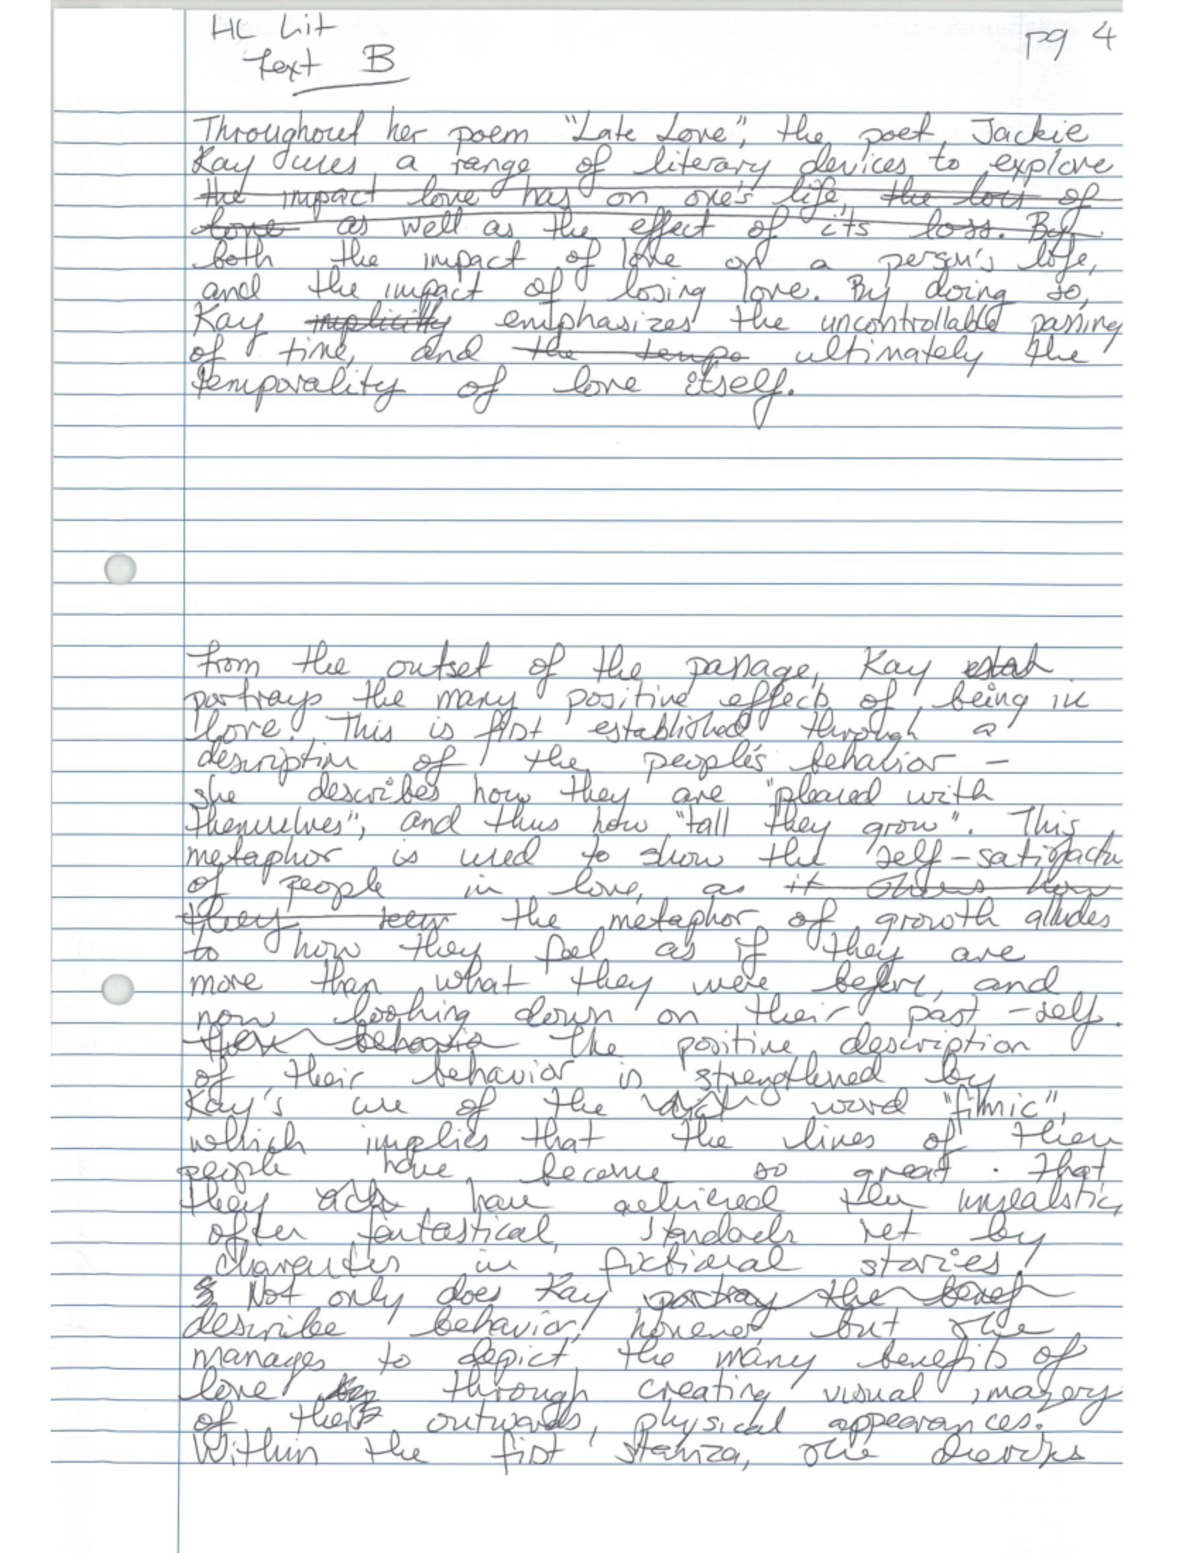 HL Lit
Text B
pg 4
Throughout her poem "Late Love", the poet Jackie
Kay uses a range of literary devices to explore
the impact love has on one's life, the loss of
love as well as the effect of its loss. By
both the impact of love on a person's life,
and the impact of losing love. By doing so,
Kay implicitly emphasizes the uncontrollable passing
of time, and the tempo ultimately the
temporality of love itself.
From the outset of the passage, Kay estab
portrays the many positive effects of being in
love. This is first established through a
description of the people's behavior –
she describes how they are "pleased with
themselves", and thus how "tall they grow". This
metaphor is used to show the self-satisfactn
of people in love, as it shows how
they seem the metaphor of growth alludes
to how they feel as if they are
more than what they were before, and
now looking down on their past-self.
their behavio the positive description
of their behavior is strengthened by
Kay's use of the word "filmic",
which implies that the lives of these
people have become so great that
they have achieved the unrealistic,
often fantastical, standards set by
characters in fictional stories.
Not only does Kay portray the benef
describe behavior, however, but she
manages to depict the many benefits of
love through creating visual imagery
of their outwards, physical appearances.
Within the first stanza, she